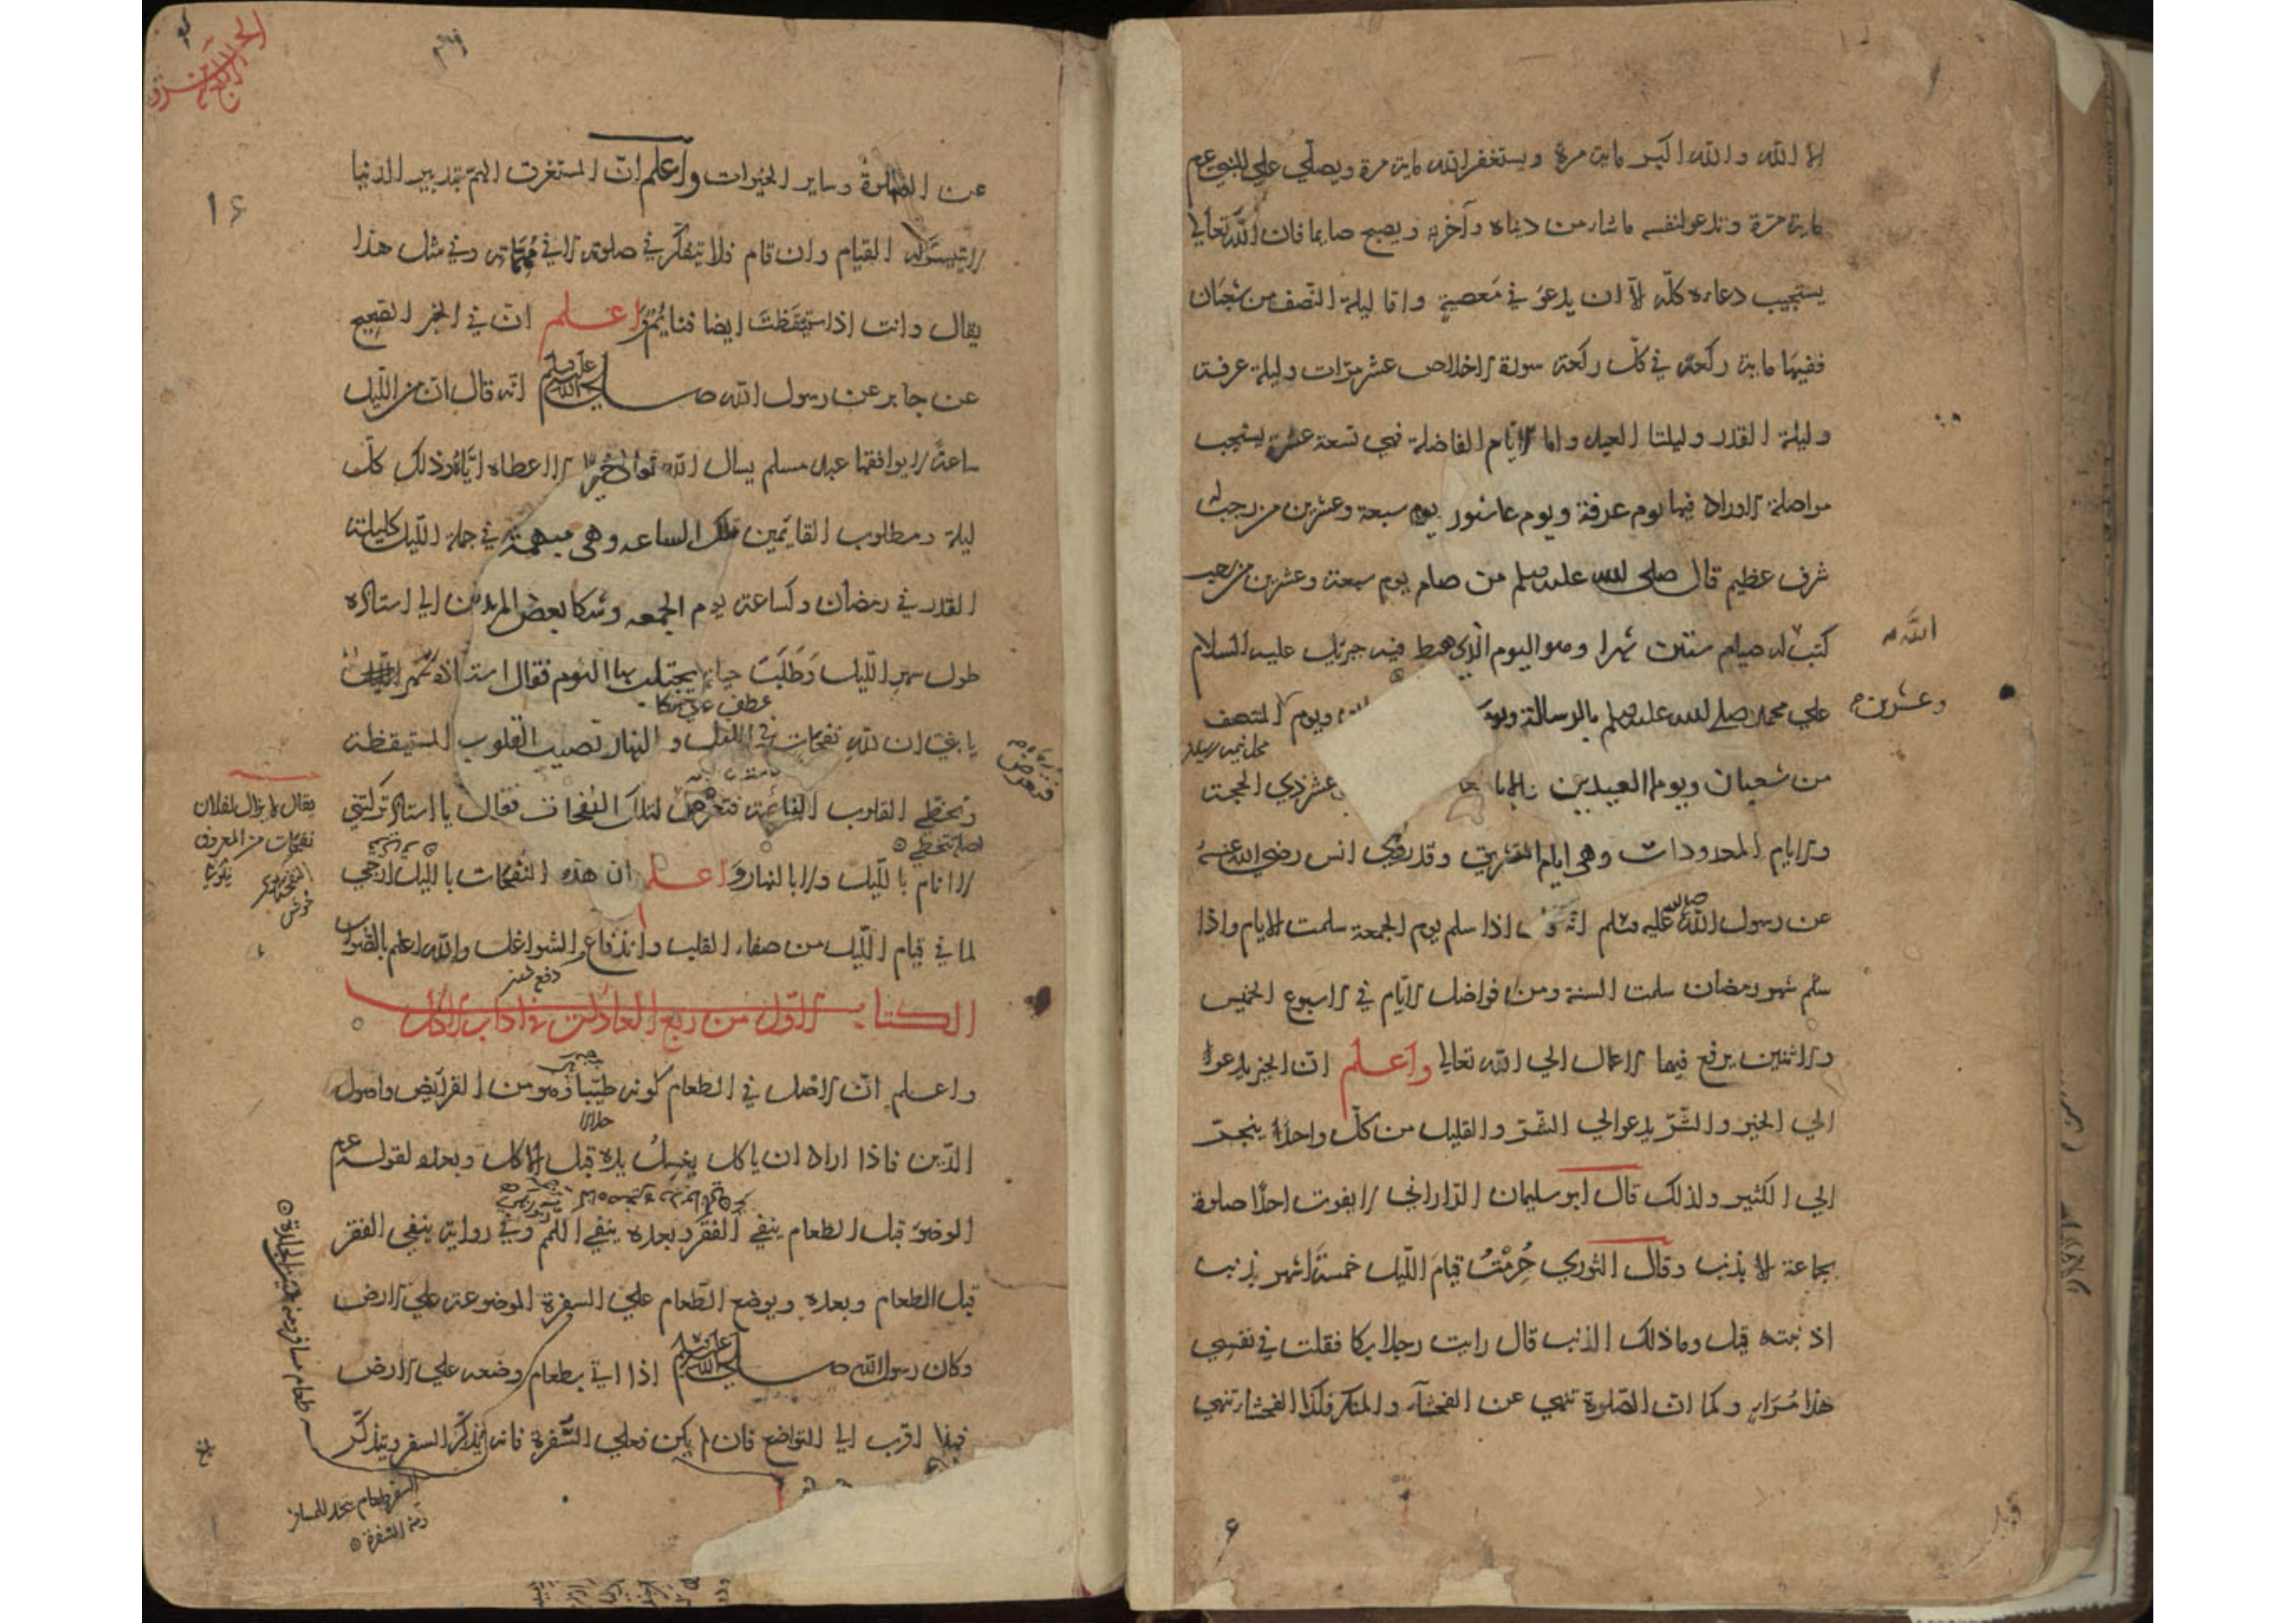 الا الله والله اكبر ماية مرة ويستغفر الله ماية مرة ويصلي علي النبي عم
ماية مرة ويدعو لنفسه ما شاء من دنياه وآخرته ويصبح صايما فان الله تعالي
يستجيب دعاءه كلّه الا ان يدعو في معصية واما ليلة النصف من شعبان
ففيها ماية ركعة في كلّ ركعة سورة الاخلاص عشر مرّات وليلة عرفة
وليلة القدر وليلتا العيد واما الايّام الفاضلة فهي تسعة عشر يستحب
مواصلة الاوراد فيها يوم عرفة ويوم عاشور يوم سبعة وعشرين من رجب له
شرف عظيم قال صلى الله عليه وسلم من صام يوم سبعة وعشرين من رجب
كتب له صيام ستين شهرا وهو اليوم الذي هبط فيه جبرئيل عليه السلام
الله
علي محمد صلى الله عليه وسلم بالرسالة ويوم ويوم المنتصف
وعشرين
من شعبان ويوما العيدين عشر ذي الحجة
والايام المعدودات وهى ايام التشريق وقد روي انس رضي الله عنه
عن رسول الله صلى الله عليه وسلم انه اذا سلم يوم الجمعة سلمت الايام واذا
سلم شهر رمضان سلمت السنة ومن فواضل الايّام في الاسبوع الخميس
والاثنين يرفع فيها الاعمال الي الله تعالي واعلم ان الخير يدعوا
الي الخير والشّرّ يدعو الي الشّرّ والقليل من كلّ واحد ينجرّ
الي الكثير ولذلك قال ابو سليمان الدّاراني لا يفوت احدا صلوة
بجماعة الا بذنب وقال الثوري حُرِمْتُ قيامَ اللّيل خمسةَ اشهر بذنب
اذنبته قيل وما ذلك الذنب قال رايت رجلا بكا فقلت في نفسي
هذا مُرَاءٍ وكما ان الصّلوة تنهي عن الفحشاء والمنكر فكذا الفحشاء تنهي
١٤
عن الصلوة وساير الخيرات واعلم انّ المستغرق الهمّ بتدبير الدنيا
لا يتيسّر له القيام وان قام فلا يتفكّر في صلوته الا في مهمّاته وفي مثل هذا
يقال وانت اذا استيقظتَ ايضا فنايمٌ واعلم ان في الخبر الصحيح
عن جابر عن رسول الله صلى الله عليه وسلم انّه قال ان من اللّيل
ساعةً لا يوافقها عبد مسلم يسال الله تعالى خيرا الا اعطاه ايّاه وذلك كلّ
ليلة ومطلوب القايمين تلك الساعه وهى مبهمة في جملة اللّيل كليلة
القدر في رمضان وكساعة يوم الجمعه وشكا بعض المريدين الي استاذه
طول سهر اللّيل وطَلَبَ حيلة يجتلب بها النوم فقال استاذه
عطف علي شكا
يا بني ان لله نفحات في الليل والنهار تصيب القلوب المستيقظة
وتخطي القلوب النائمة فتعرض لتلك النفحات فقال يا استاذ تركتني
اصله تتخطي
لا انام بالليل ولا بالنهار واعلم ان هذه النفحات بالليل ارجي
لما في قيام اللّيل من صفاء القلب واندفاع الشواغل والله اعلم بالصّواب
يقال لا يزال لفلان
نفحات من المعروف
الكتاب الاوّل من ربع العادات في اداب الاكل
واعلم انّ الاصل في الطعام كونه طيّبا وهو من الفرايض واصول
حلالا
الدّين فاذا اراد ان ياكل يغسل يده قبل الاكل وبعده لقوله عم
الوضوء قبل الطعام ينفي الفقر وبعده ينفي اللمم وفي رواية ينفي الفقر
قبل الطعام وبعده ويوضع الطّعام علي السفرة الموضوعة علي الارض
وكان رسول الله صلى الله عليه وسلم اذا اتي بطعام وضعه علي الارض
فهذا اقرب الي التواضع فان لم يكن فعلي السّفرة فانه يذكّر السفر ويتذكّر
السفرة طعام يتخذ للمسافر
ومنه السّفرة